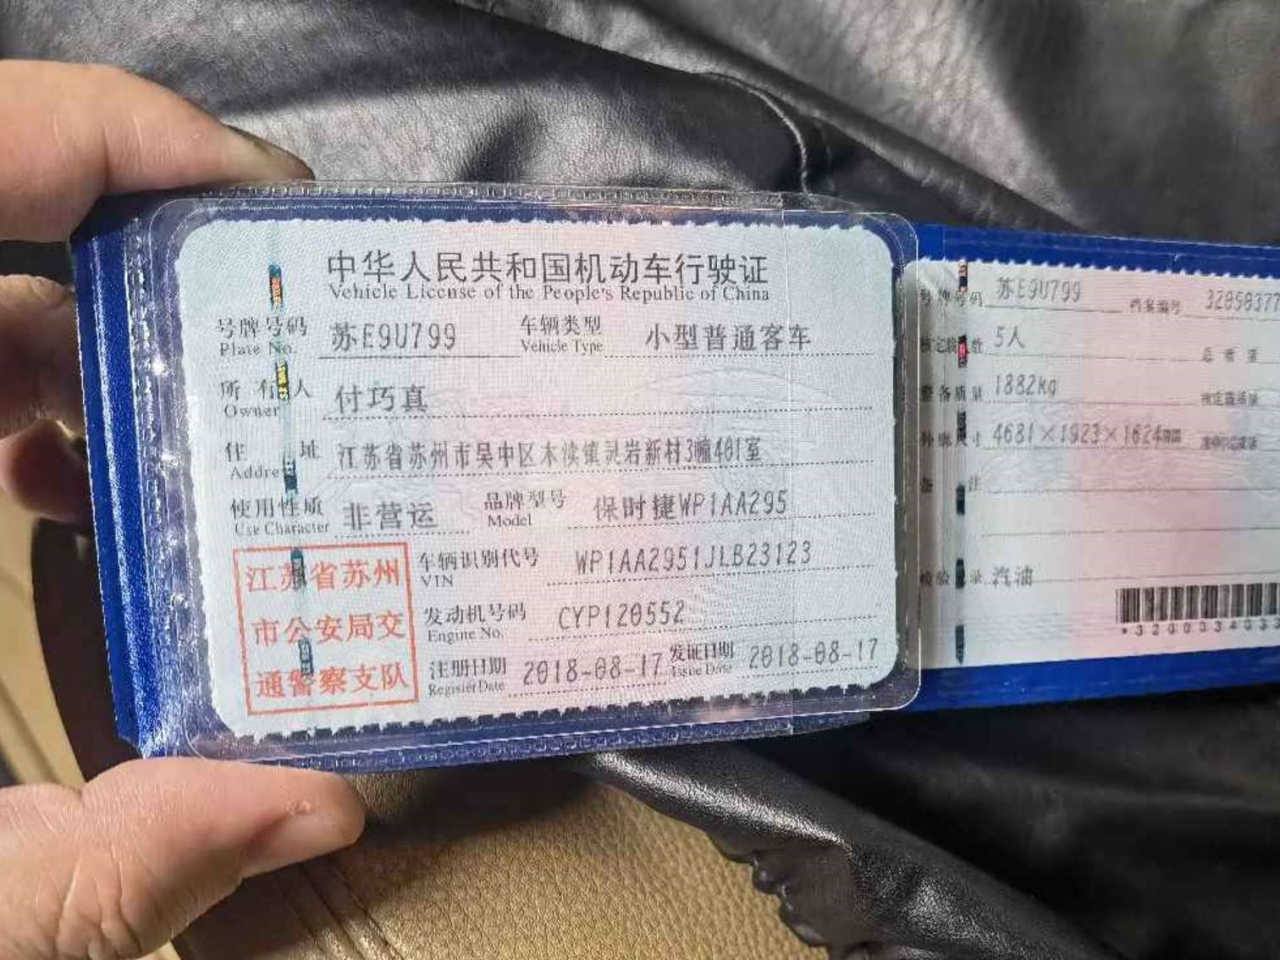 中华人民共和国机动车行驶证
Vehicle License of the People's Republic of China
号牌号码 苏E9U799 车辆类型 小型普通客车
Plate No. Vehicle Type
所有人 付巧真
Owner
住址 江苏省苏州市吴中区木渎镇灵岩新村3幢401室
Address
使用性质 非营运 品牌型号 保时捷WP1AA295
Use Character Model
车辆识别代号 WP1AA2951JLB23123
VIN
发动机号码 CYP120552
Engine No.
注册日期 2018-08-17 发证日期 2018-08-17
Register Date Issue Date
江苏省苏州
市公安局交
通警察支队
号牌号码 苏E9U799 档案编号 32050377
核定载人数 5人 总质量
整备质量 1882kg 核定载质量
外廓尺寸 4681×1923×1624mm
备注
检验记录 汽油